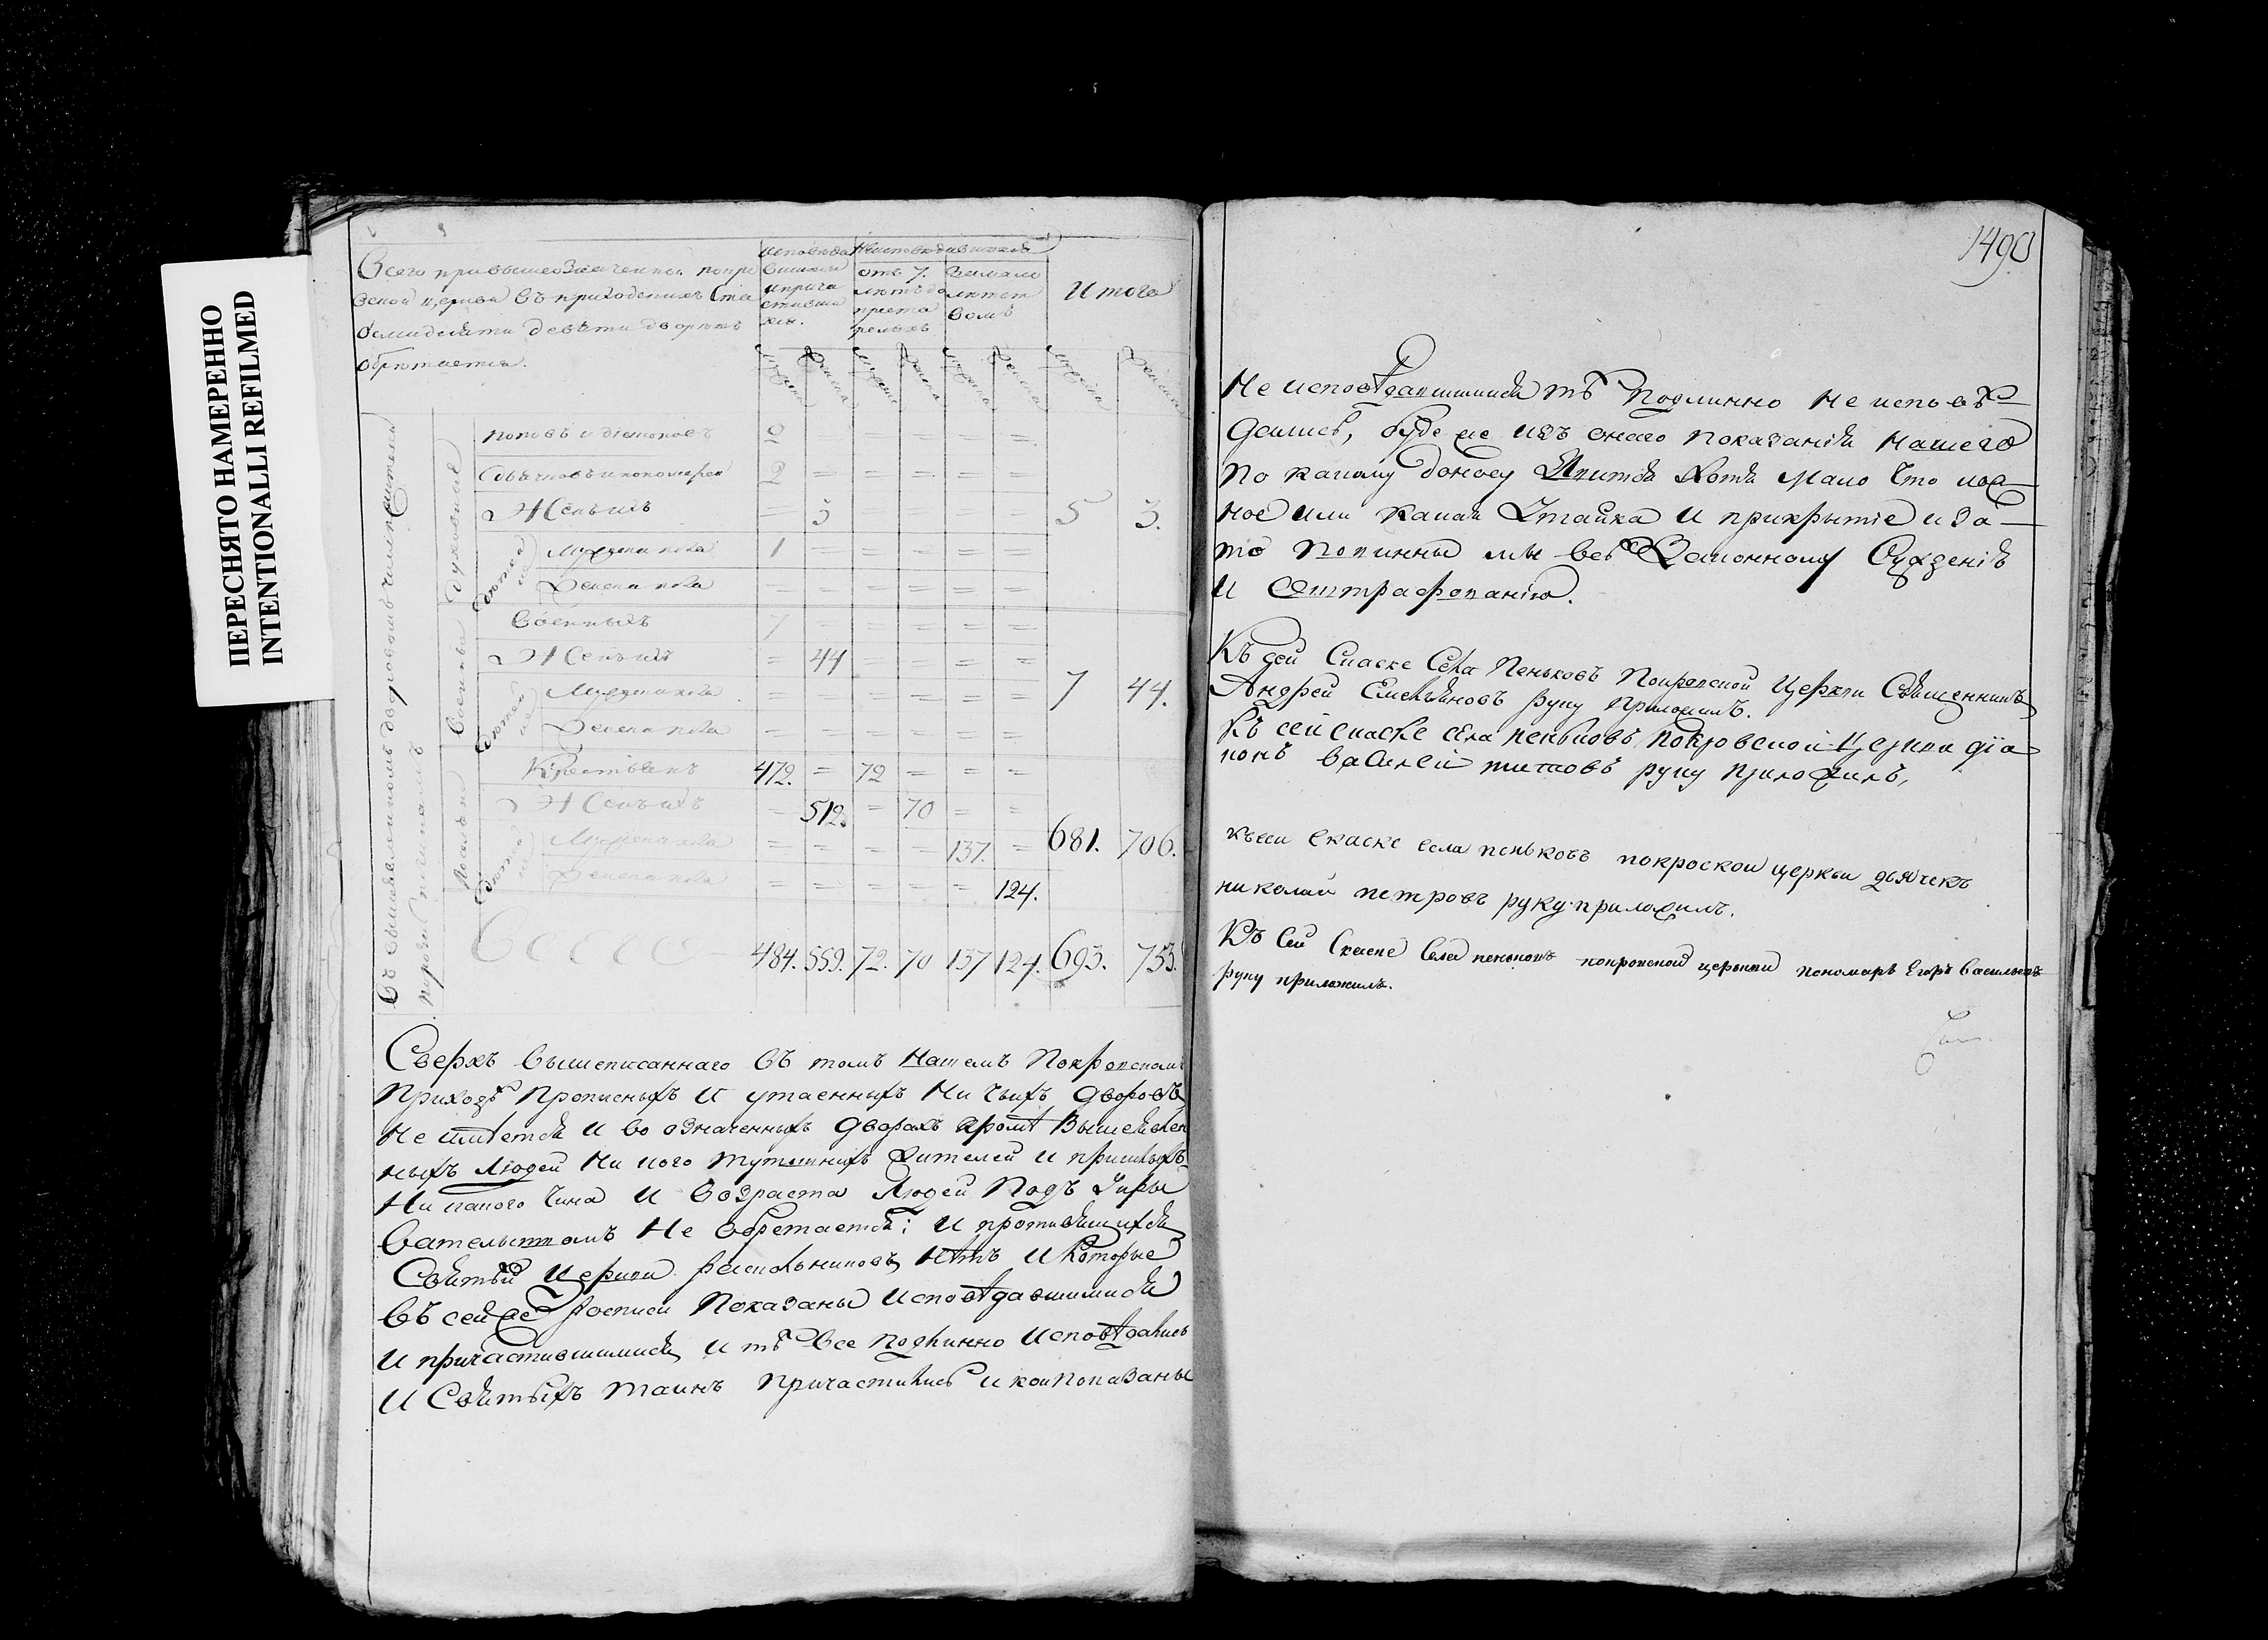 ПЕРЕСНЯТО НАМЕРЕННО
INTENTIONALLI REFILMED
1490
Всего при вышеозначенной покро
вской церкви въ приходскихъ ста
осмидесяти девяти дворѣхъ
обрѣтается.
исповѣда
вшихся
и прича
стивши
хся.
Неисповѣдавшихся
отъ 7.
лѣтъ до
преста
релыхъ
за мало
лѣтст
вомъ
Итого
мужеска женска мужеска женска мужеска женска мужеска женска
Духовные
поповъ и дьяконовъ 2 = = = = =
дьячковъ и пономарей 2 = = = = =
Женъ ихъ = 3 = = = = 5 3.
дѣтей их
Мужеска пола 1 = = = = =
Женска пола = = = = = =
Военные
Военныхъ 7 = = = = =
Женъ ихъ = 44 = = = = 7 44.
дѣтей их
Мужеска пола = = = = = =
Женска пола = = = = = =
Крестьянъ 472. = 72 = = =
Женъ ихъ = 512. = 70 = =
дѣтей их
Мужеска пола = = = = 137. = 681. 706.
Женска пола = = = = = 124.
Всего 484. 559. 72. 70 137 124. 693. 753.
Сверхъ вышеписаннаго въ томъ нашемъ Покровскомъ
Приходѣ прописныхъ и утаенныхъ ни чьихъ дворовъ
не имѣется и во означенныхъ дворахъ кромѣ вышеявлен
ныхъ людей ни кого тутошнихъ жителей и пришлыхъ
ни какого чина и возраста людей подъ укры
вательствомъ не обретается; и противящихся
Святѣй церкви раскольниковъ нѣтъ и которые
въ сей же росписи показаны исповѣдавшимися
и причастившимися, и тѣ все подлинно исповѣдались
и Святыхъ таинъ причастились и кои показаны
Не исповѣдавшимися тѣ подлинно не исповѣ-
дались, буде же изъ онаго показания нашего
по какому доносу явится хотя мало что лож-
ное или какая утайка и прикрытие и за-
то повинны мы все законному сужденiю
и оштрафованiю.
Къ сей скаске села Пеньковъ Покровской церкви священникъ
Андрей Емельяновъ руку приложилъ.
Къ сей скаске села пеньковъ покровской церкви дїа
конъ василей титовъ руку приложилъ,
къ сеи скаске села пенковъ покроскои церкви дьячекъ
николаи петровъ руку приложилъ.
Къ сей скаске села пеньковъ покровской церькви пономарь Егоръ Васильевъ
руку приложилъ.